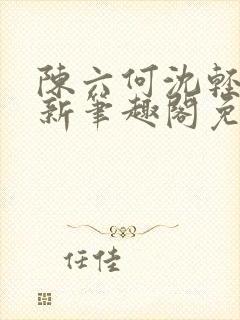 陳六何沈輕
新筆趣閣免
任佳